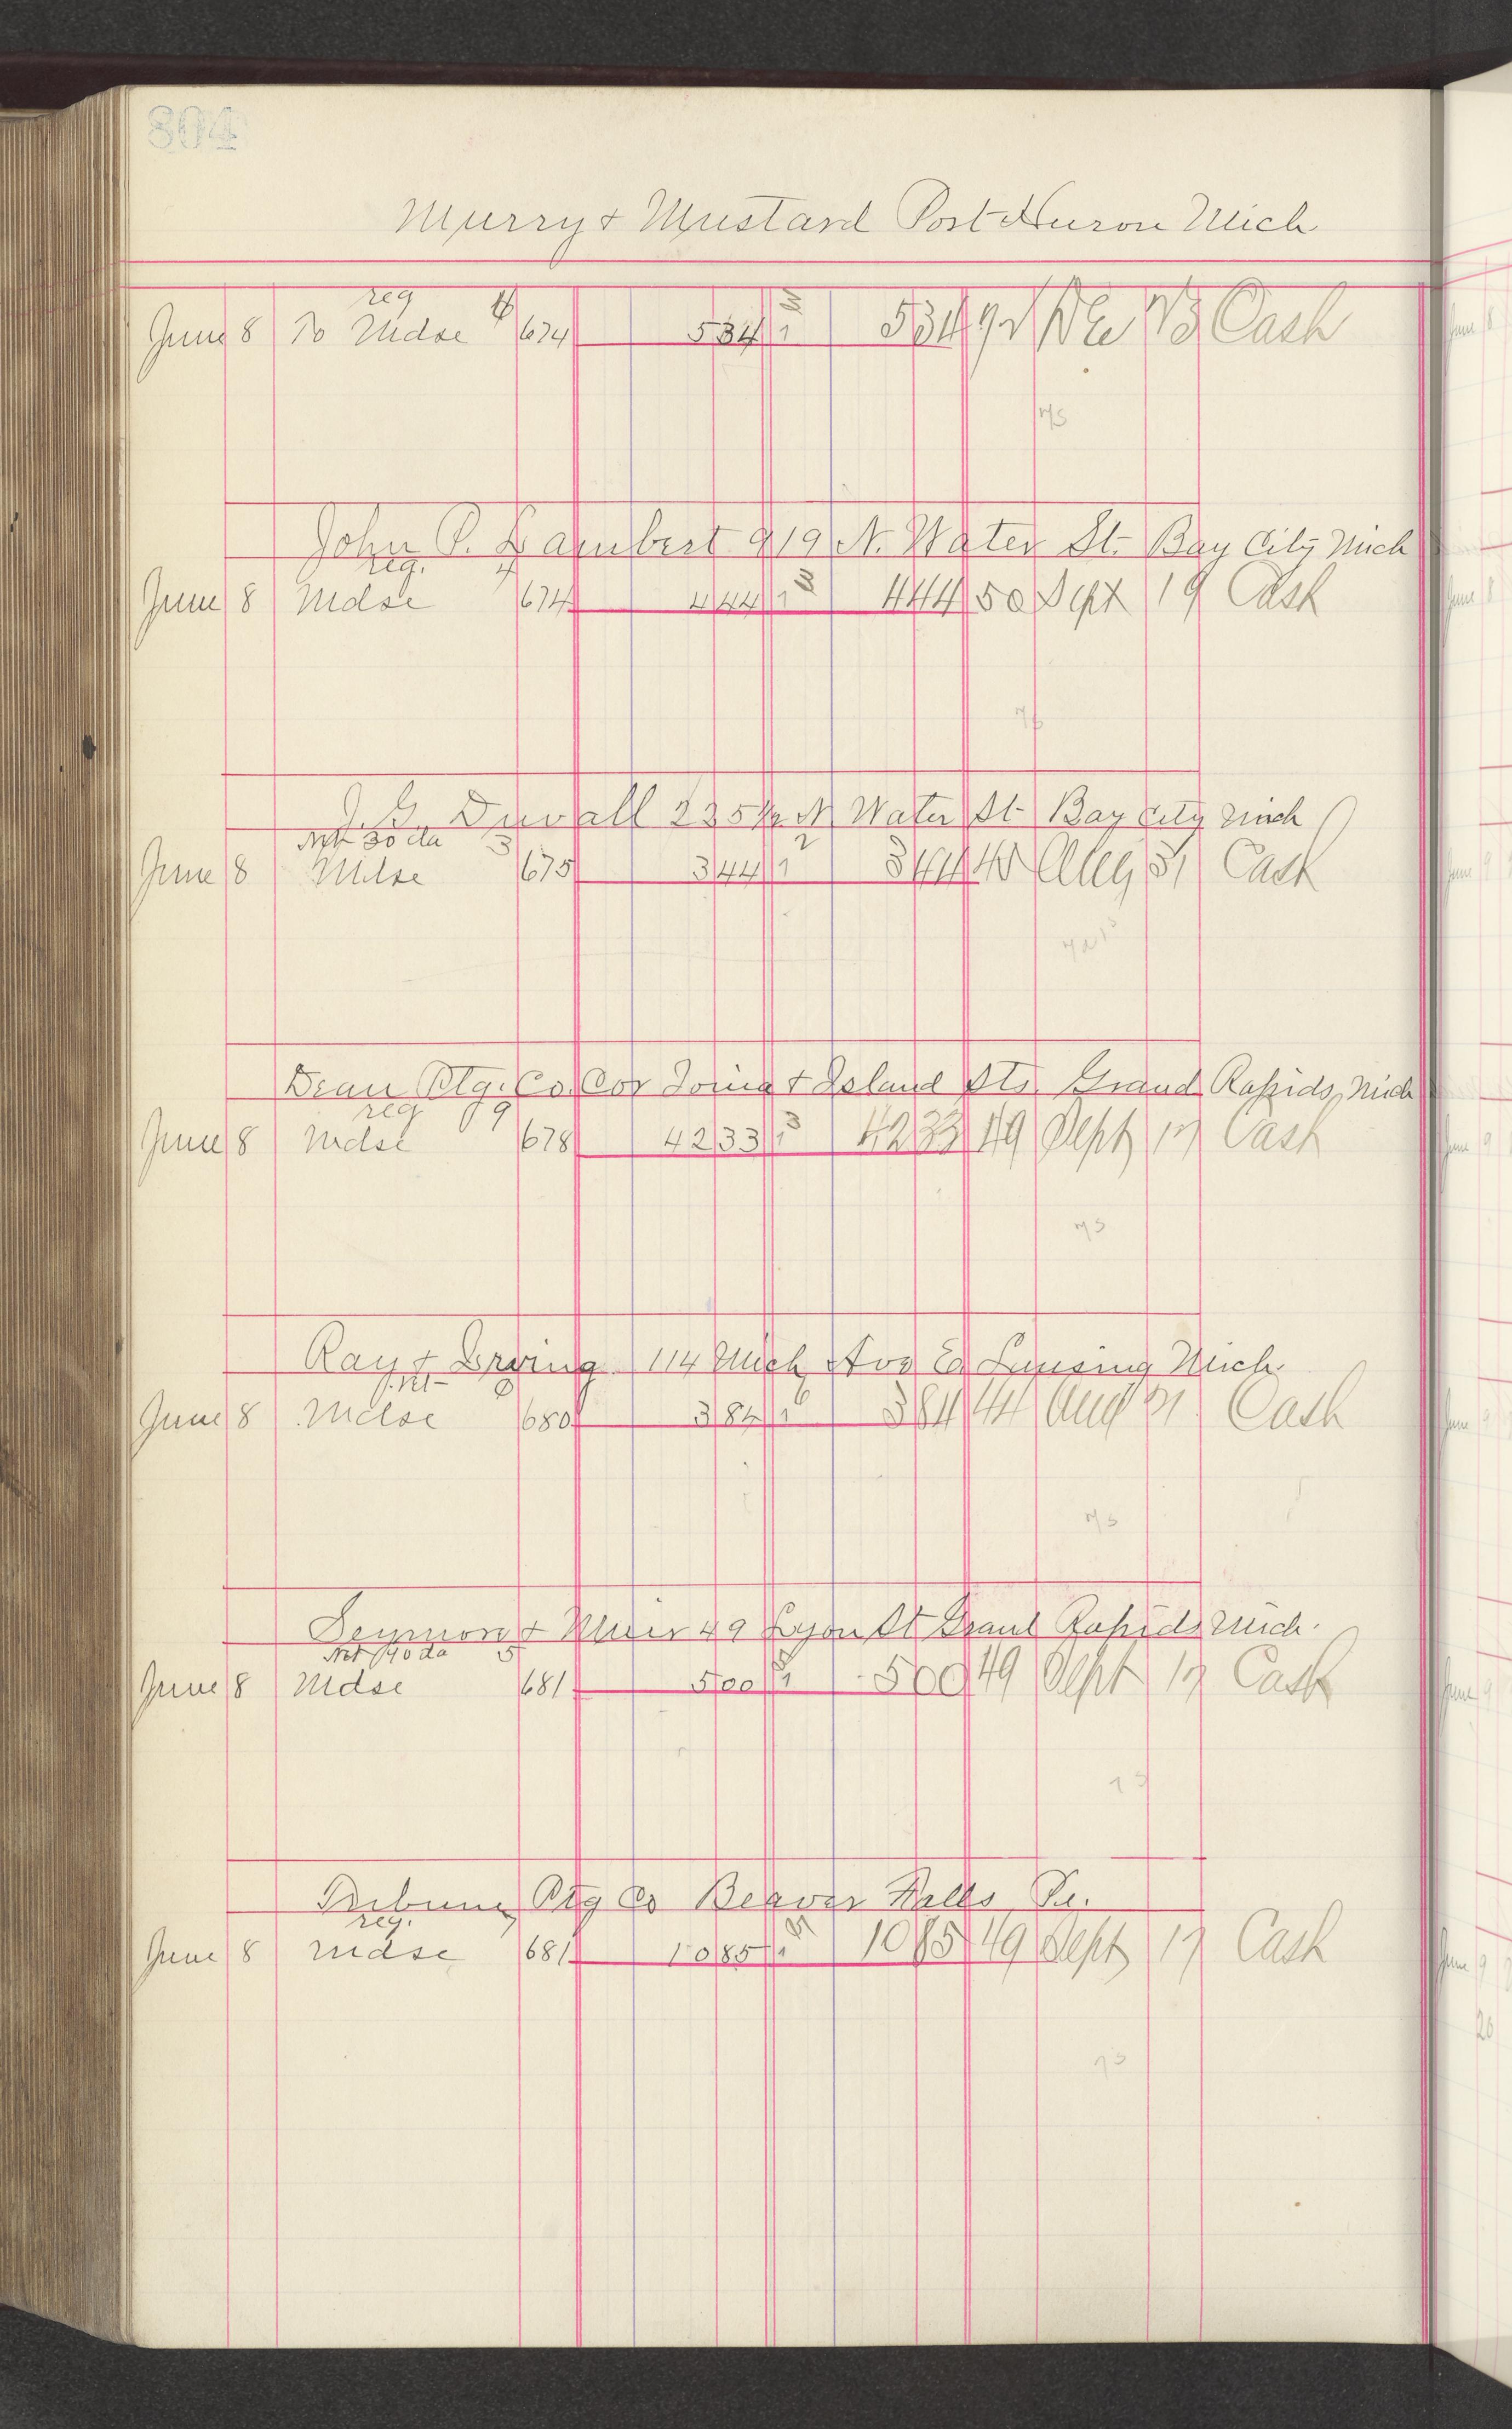 Murry & Mustard Port Huron Mich
reg 4
June 8 To Mdse 674 534 1 3 534 Cash
John P. Lambert 919 N. Water St. Bay City Mich
reg. 4
June 8 Mdse 674 444 1 3 444 50 Sept 19 Cash
J. G. Duvall 235½ N Water St Bay City Mich
Net 30 da 3 2
June 8 Mdse 675 344 1 344 Aug 31 Cash
Dean Ptg. Co. Cor Ionia & Island Sts. Grand Rapids, Mich
reg 9
June 8 Mdse 678 4233 1 3 4233 49 Sept 17 Cash
Ray & Irving 114 Mich Ave Ea Lansing Mich.
June 8 Mdse 680 384 1 6 384 44 Aug 31 Cash
Seymour & Muir 49 Lyon St Grand Rapids Mich.
Net 90 da 5
June 8 Mdse 681 500 1 500 49 Sept 17 Cash
Tribune Ptg Co Beaver Falls Pa.
reg.
June 8 Mdse 681 1085 1 1085 49 Sept 17 Cash